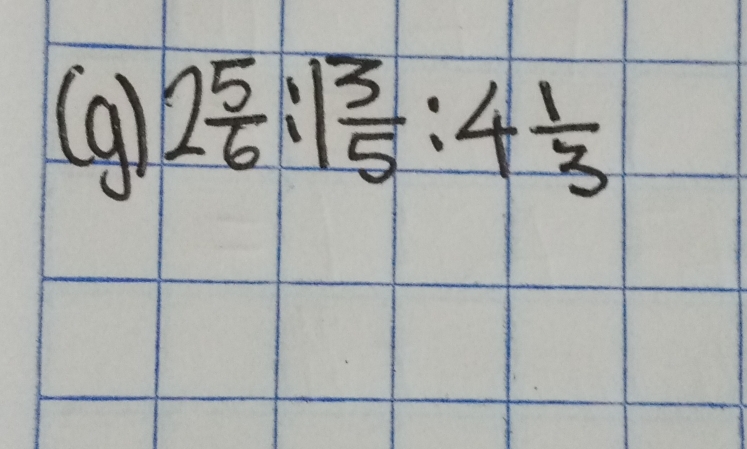 (g) 2 5/6 : 1 3/5 : 4 1/3